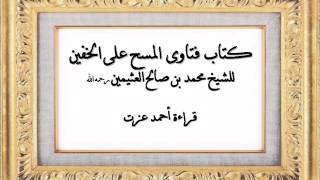 كتاب فتاوى المسح على الخفين
للشيخ محمد بن صالح العثيمين رحمه الله
قراءة أحمد عزت